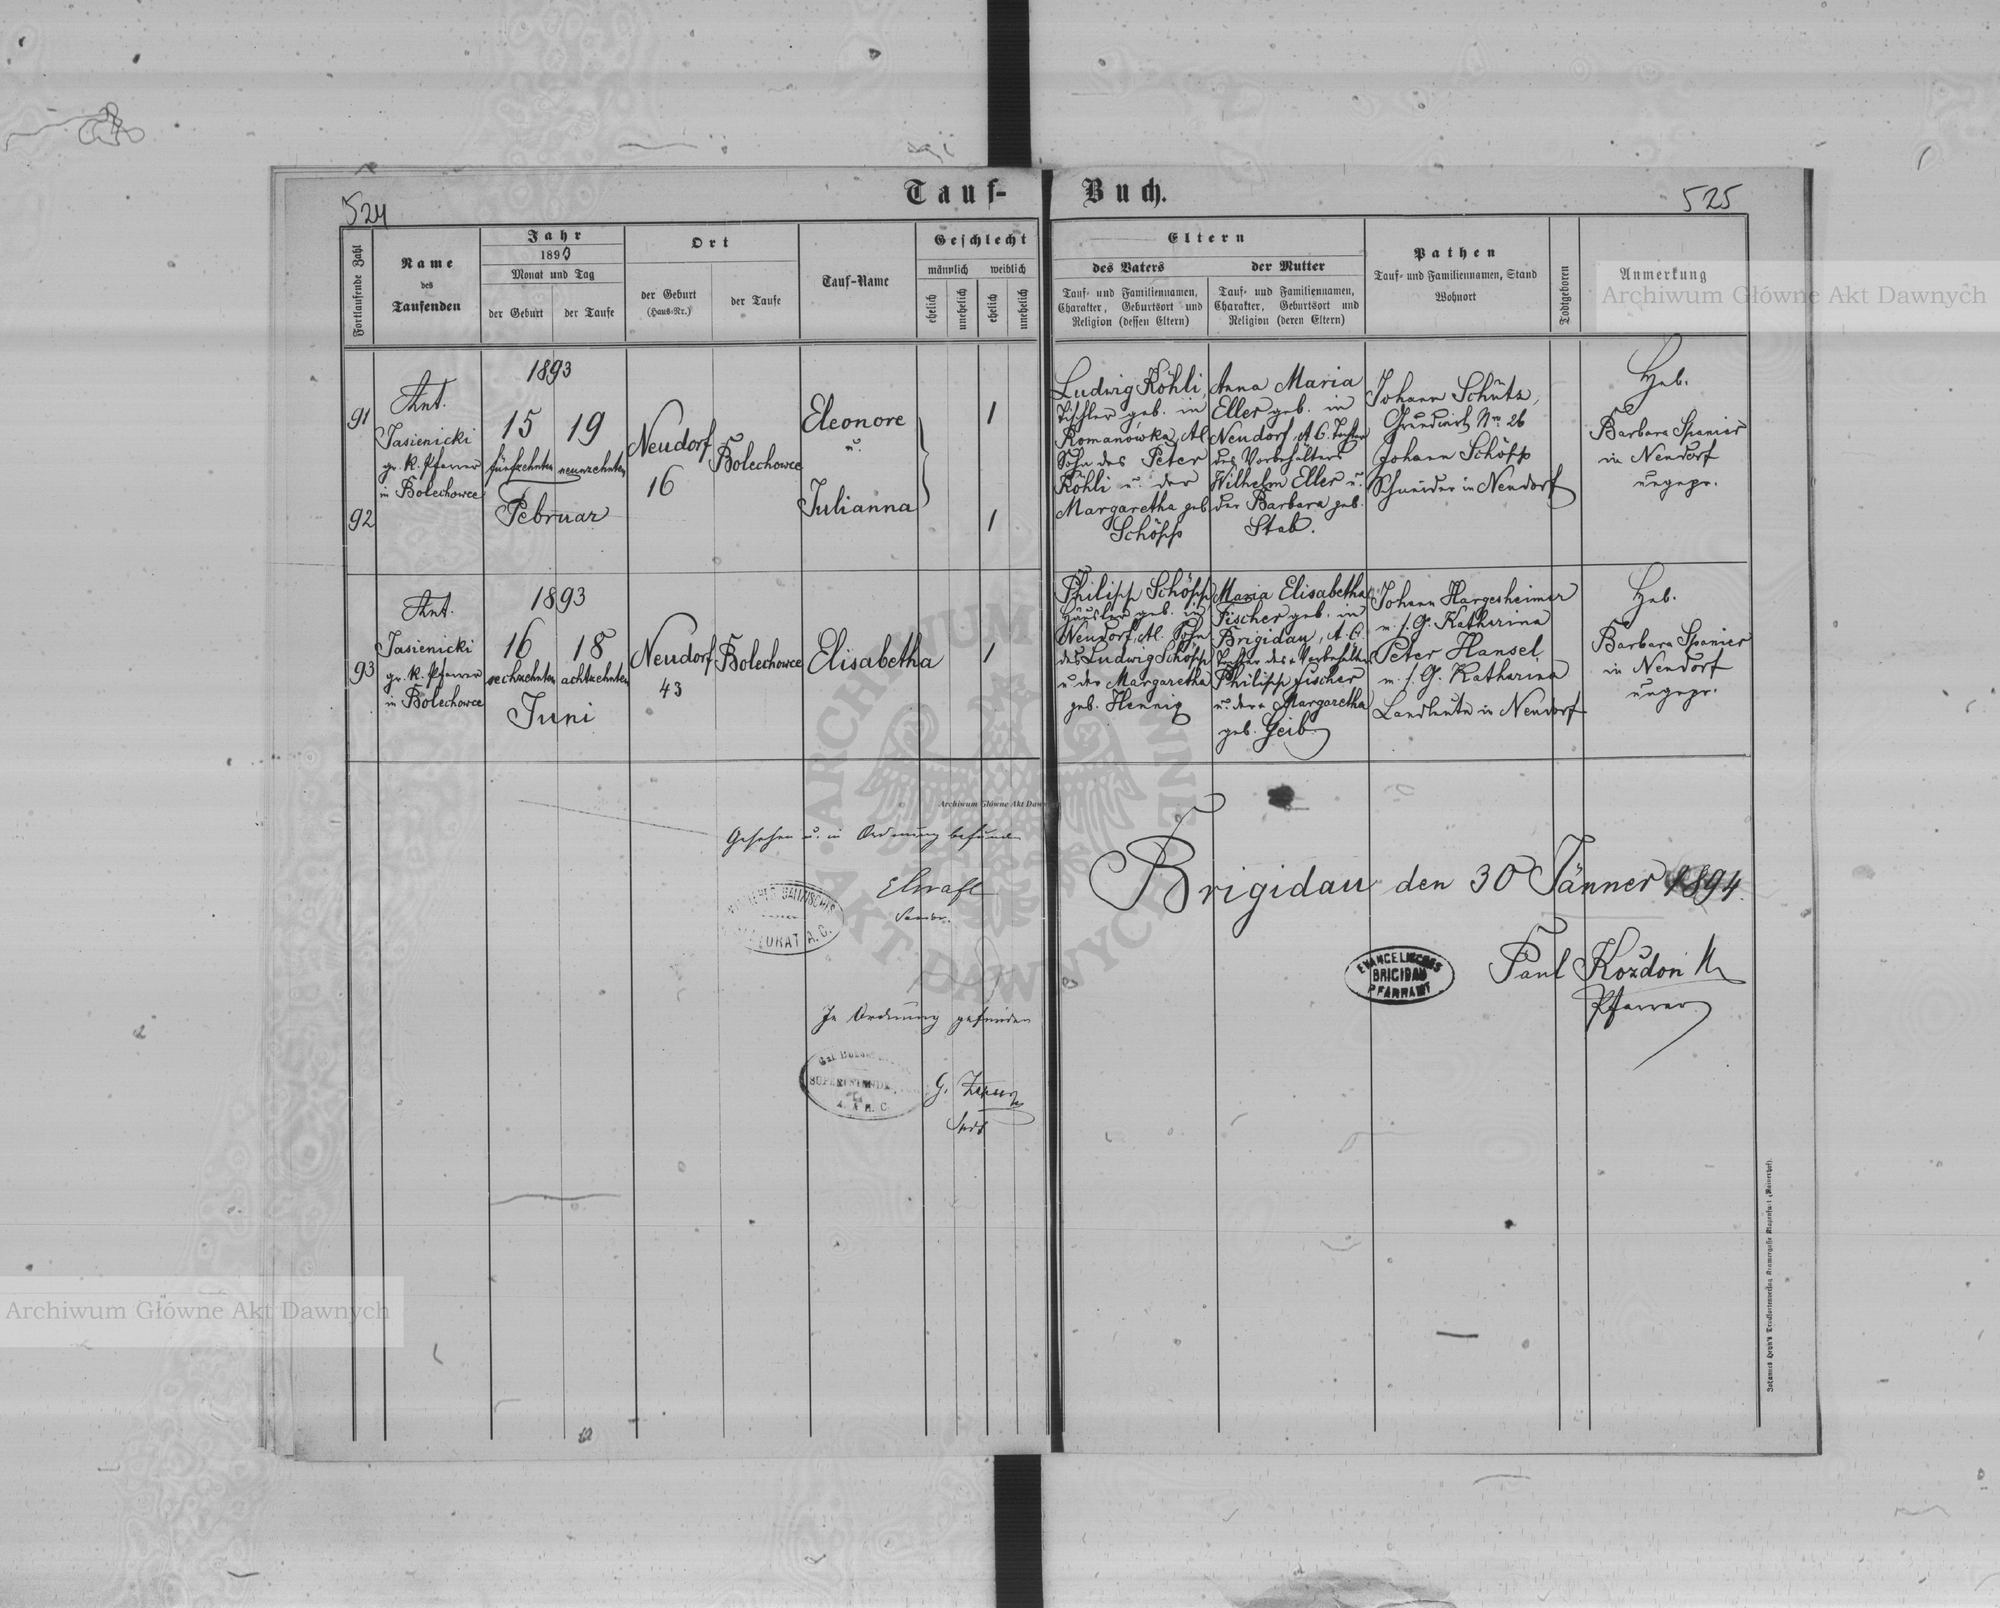 524
Tauf-
Buch.
525
Fortlaufende Zahl
Name
des
Taufenden
Jahr
1893
Monat und Tag
der Geburt
der Taufe
Ort
der Geburt
(Haus-Nr.)
der Taufe
Tauf-Name
Geschlecht
männlich
weiblich
ehelich
unehelich
ehelich
unehelich
Eltern
des Vaters
Tauf- und Familiennamen,
Charakter, Geburtsort und
Religion (dessen Eltern)
der Mutter
Tauf- und Familiennamen,
Charakter, Geburtsort und
Religion (deren Eltern)
Pathen
Tauf- und Familiennamen, Stand
Wohnort
Todtgeboren
Anmerkung
Archiwum Główne Akt Dawnych
91
92
Ant.
Jasienicki
gr. k. Pfarrer
in Bolechowce
1893
15
19
fünfzehnten
neunzehnten
Februar
Neudorf
16
Bolechowce
Eleonore
u.
Julianna
1
1
Ludwig Köhli,
Tischler geb. in
Romanówka, Al.
Sohn des Peter
Köhli u. der
Margaretha geb.
Schöpp
Anna Maria
Eller geb. in
Neudorf, A. C. Tochter
des Vorbehälters
Wilhelm Eller u.
der Barbara geb.
Stab.
Johann Schütz,
Grundwirt No. 26
Johann Schöpp
Schneider in Neudorf
Heb.
Barbara Spanier
in Neudorf
ungepr.
93
Ant.
Jasienicki
gr. k. Pfarrer
in Bolechowce
1893
16
18
sechzehnten
achtzehnten
Juni
Neudorf
43
Bolechowce
Elisabetha
1
Philipp Schöpp
Häusler geb. in
Neudorf, Al. Sohn
des Ludwig Schöpp
u. der Margaretha
geb. Hennig
Maria Elisabetha
Fischer geb. in
Brigidau, A. C.
Tochter des Vorbehälters
Philipp Fischer
u. der Margaretha
geb. Geib
Johann Hargesheimer
m. s. G. Katharina
Peter Hansel
m. s. G. Katharina
Landleute in Neudorf
Heb.
Barbara Spanier
in Neudorf
ungepr.
Archiwum Główne Akt Dawnych
Gesehen u. in Ordnung befunden
Senior.
SENIORAT A. C.
Brigidau den 30 Jänner 1894.
EVANGELISCHES
BRIGIDAU
PFARRAMT
Paul Kozdoń
Pfarrer
In Ordnung gefunden
SUPERINTENDENTUR
A. & H. C.
Archiwum Główne Akt Dawnych
ARCHIWUM GŁÓWNE AKT DAWNYCH